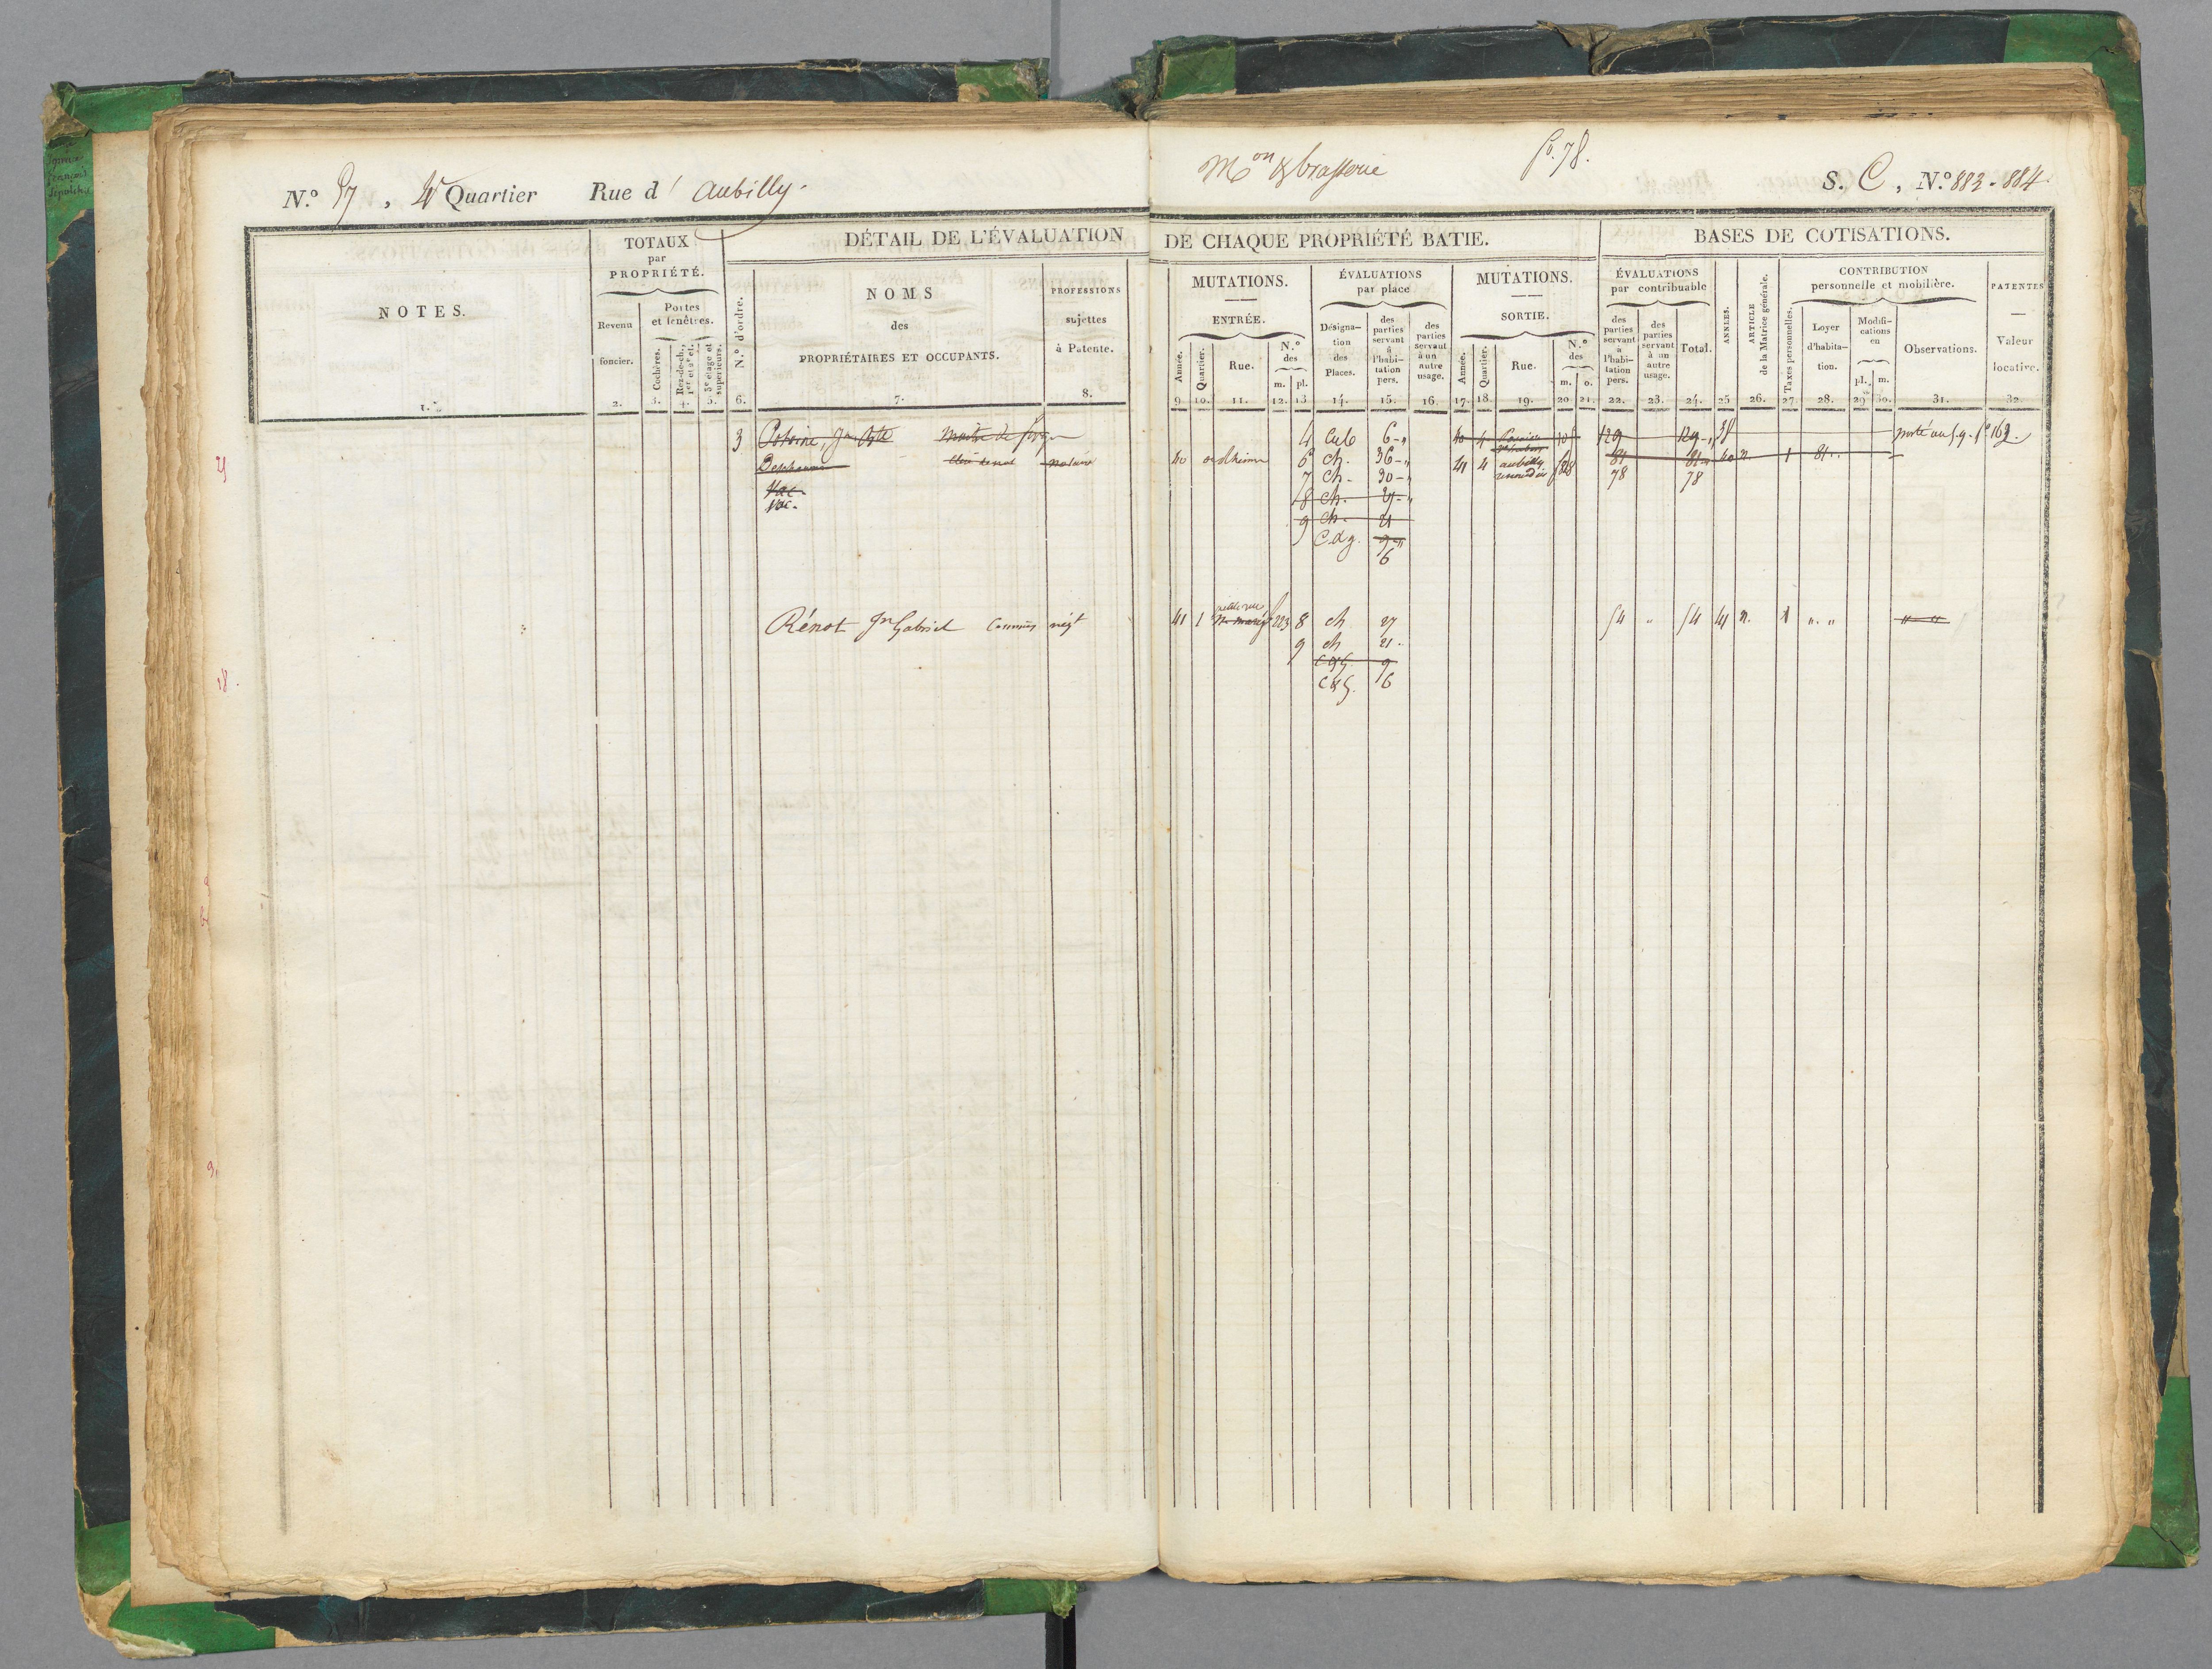 N.º 37, 4e Quartier Rue d' aubilly.
Mon & brasserie fo. 78.
S. C, N.º 883-884.
NOTES.
1.
TOTAUX par PROPRIÉTÉ.
Revenu foncier.
2.
Portes et fenêtres.
Cochères.
3.
Rez-de-ch., 1er et 2e ét.
4.
3e étage et supérieurs.
5.
DÉTAIL DE L'ÉVALUATION DE CHAQUE PROPRIÉTÉ BATIE.
N.º d'ordre.
6.
NOMS des PROPRIÉTAIRES ET OCCUPANTS.
7.
PROFESSIONS sujettes à Patente.
8.
MUTATIONS.
ENTRÉE.
Année. Quartier. Rue. N.º des m. pl.
9 10. 11. 12. 13
ÉVALUATIONS par place
Désignation des Places.
14.
des parties servant à l'habitation pers.
15.
des parties servant à un autre usage.
16.
MUTATIONS.
SORTIE.
Année. Quartier. Rue. N.º des m. o.
17. 18. 19. 20 21.
BASES DE COTISATIONS.
ÉVALUATIONS par contribuable
des parties servant à l'habitation pers.
22.
des parties servant à un autre usage.
23.
Total.
24.
ANNÉES.
25
ARTICLE de la Matrice générale.
26.
CONTRIBUTION personnelle et mobilière.
Taxes personnelles.
27.
Loyer d'habitation.
28.
Modifications en pl. m.
29 30.
Observations.
31.
PATENTES
Valeur locative.
32.
3 Jn Bte Maitre de forges 4 Cab 6-" 40 4 108 129 129-" 38 porté au f.g. fo 163.
notaire 40 6 ch. 36-" 41 4 aubilly 81 81 40 n. 1 81..
7 ch. 30-" 78 78
Vac. 8 ch. 27-"
Vac. 9 ch. 21
C.d g. 9-"
6
Rénot Jn Gabriel Commis négt 41 1 223 8 ch 27 54 " 54 41 n. 1 ".." " "
9 ch 21.
C&G. 9
C&G. 6
18.